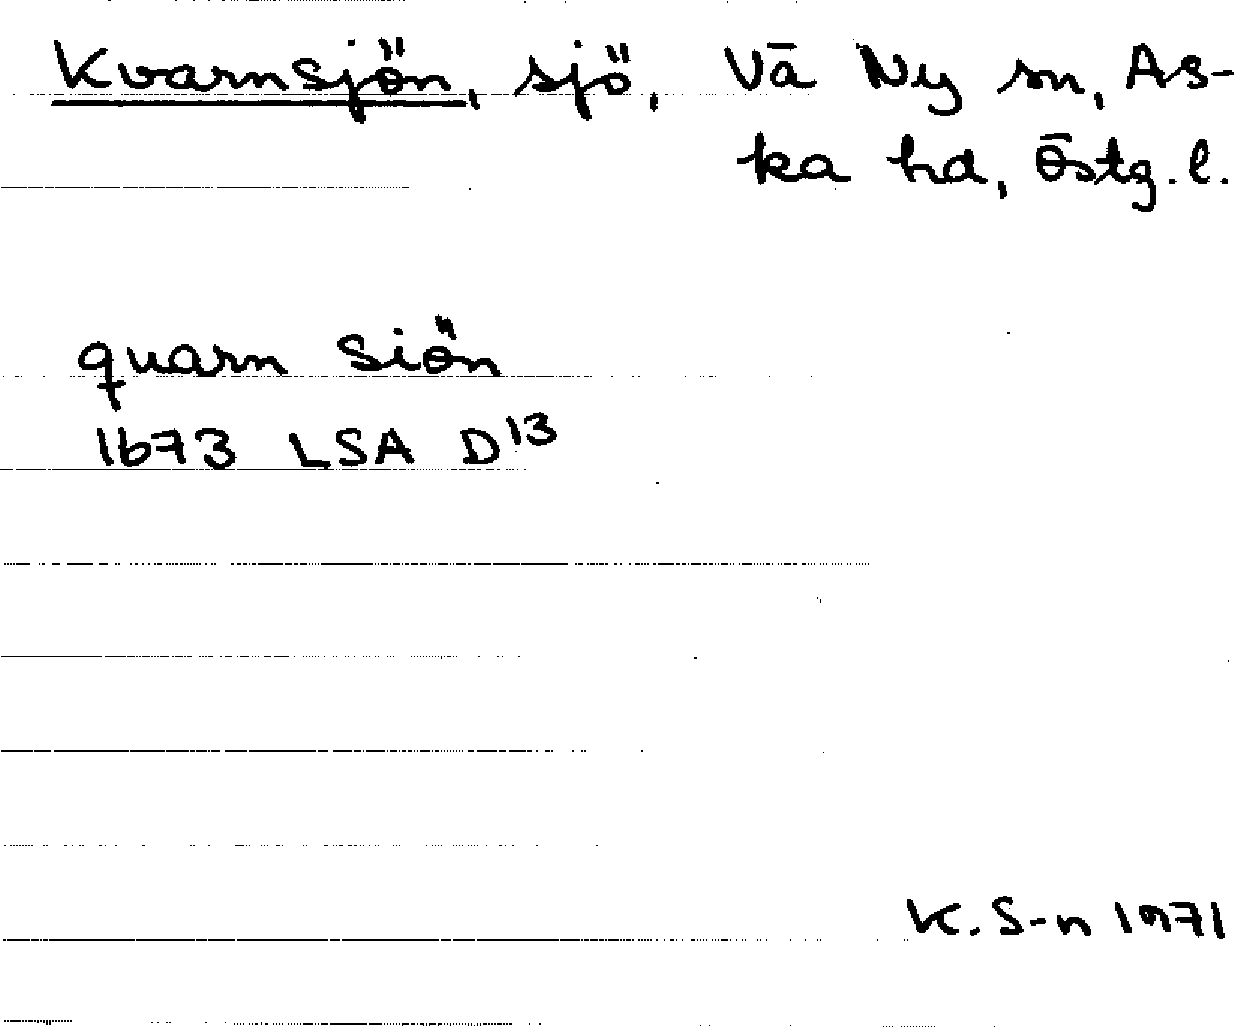 Kvarnsjön, sjö, Vä Ny sn, As-
ka hd, Östg.l.
quarn Siön
1673 LSA D13
K.S-n 1971